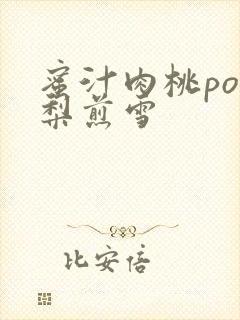 蜜汁肉桃po
梨煎雪
比安倍